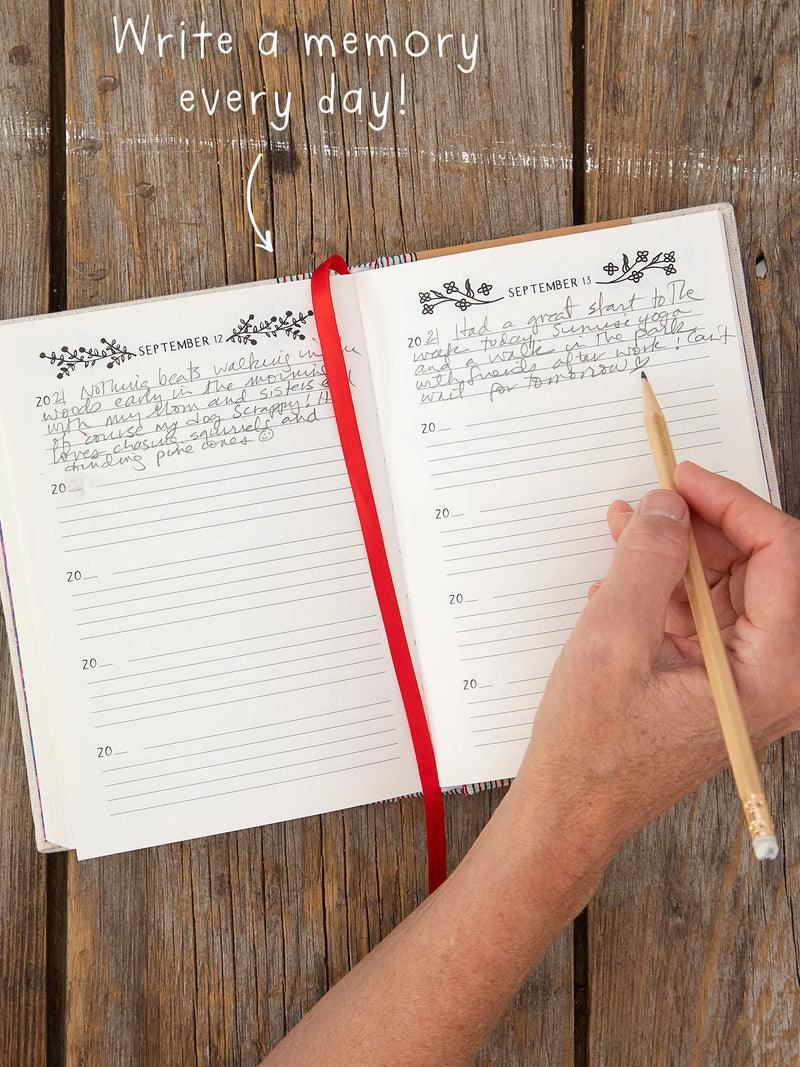 Write a memory
every day!
SEPTEMBER 12
2021 Nothing beats walking in the
woods early in the morning
with my Mom and sisters and
of course my dog Scrappy! He
loves chasing squirrels and
finding pine cones ☺
20__
20__
20__
20__
SEPTEMBER 13
2021 Had a great start to the
week today. Sunrise yoga
and a walk in the park
with friends after work! Can't
wait for tomorrow ♡
20__
20__
20__
20__